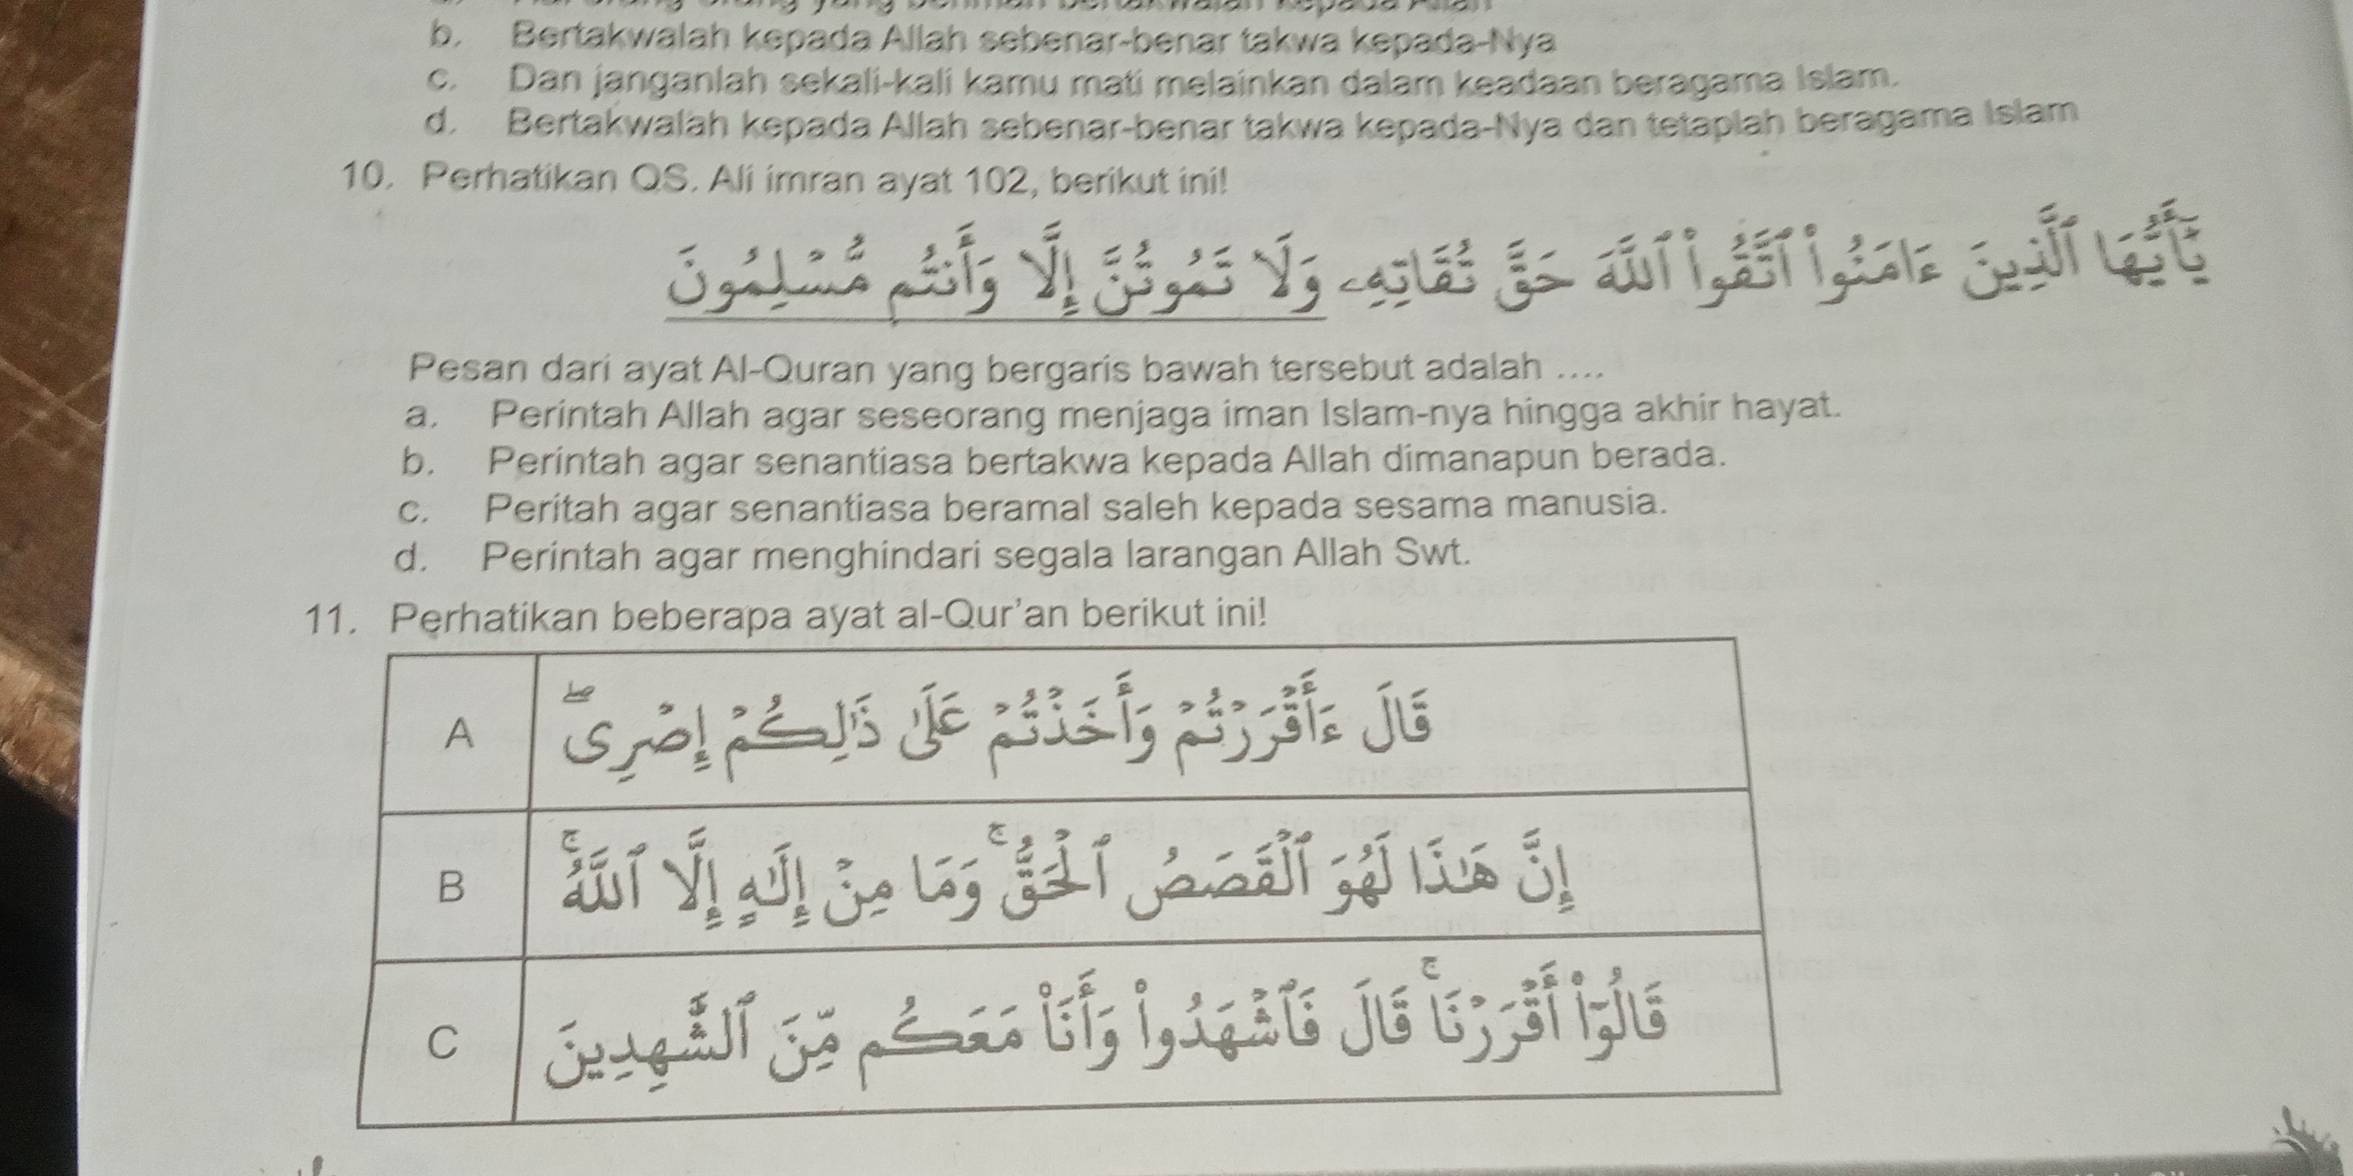 b. Bertakwalah kepada Allah sebenar-benar takwa kepada-Nya
c. Dan janganlah sekali-kali kamu mati melainkan dalam keadaan beragama Islam.
d. Bertakwalah kepada Allah sebenar-benar takwa kepada-Nya dan tetaplah beragama Islam
10. Perhatikan QS. Ali imran ayat 102, berikut ini!
يَٰٓأَيُّهَا ٱلَّذِينَ ءَامَنُوا۟ ٱتَّقُوا۟ ٱللَّهَ حَقَّ تُقَاتِهِۦ وَلَا تَمُوتُنَّ إِلَّا وَأَنتُم مُّسْلِمُونَ
Pesan dari ayat Al-Quran yang bergaris bawah tersebut adalah ....
a. Perintah Allah agar seseorang menjaga iman Islam-nya hingga akhir hayat.
b. Perintah agar senantiasa bertakwa kepada Allah dimanapun berada.
c. Peritah agar senantiasa beramal saleh kepada sesama manusia.
d. Perintah agar menghindari segala larangan Allah Swt.
11. Perhatikan beberapa ayat al-Qur'an berikut ini!
A قَالَ ءَأَقْرَرْتُمْ وَأَخَذْتُمْ عَلَىٰ ذَٰلِكُمْ إِصْرِى ۖ
B إِنَّ هَٰذَا لَهُوَ ٱلْقَصَصُ ٱلْحَقُّ ۚ وَمَا مِنْ إِلَٰهٍ إِلَّا ٱللَّهُ ۚ
C قَالُوٓا۟ أَقْرَرْنَا ۚ قَالَ فَٱشْهَدُوا۟ وَأَنَا۠ مَعَكُم مِّنَ ٱلشَّٰهِدِينَ